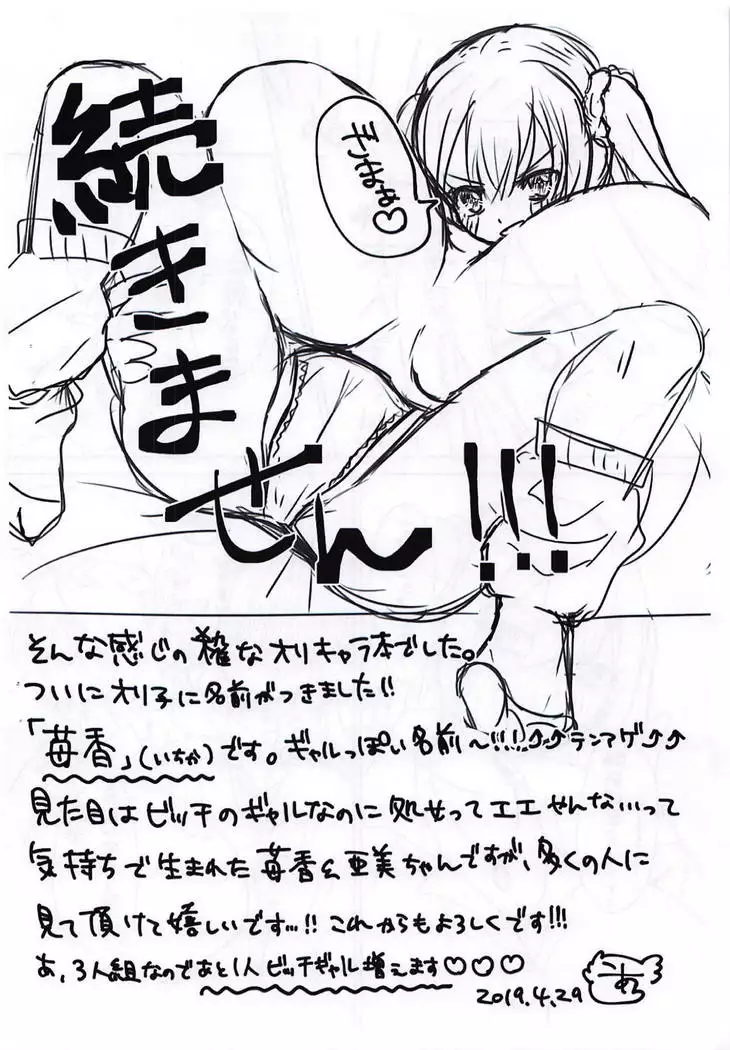 続きま
せん!!!
ぎまぁ♡
そんな感じの雑なオリキャラ本でした。
ついにオリ子に名前がつきました!!
「苺香」(いちか)です。ギャルっぽい名前〜!!!⤴⤴テンアゲ⤴⤴
見た目はビッチのギャルなのに処女ってエエやんな…って
気持ちで生まれた苺香&亜美ちゃんですが、多くの人に
見て頂けて嬉しいです…!! これからもよろしくです!!!
あ、3人組なのであと1人ビッチギャル増えます♡♡♡
2019.4.29